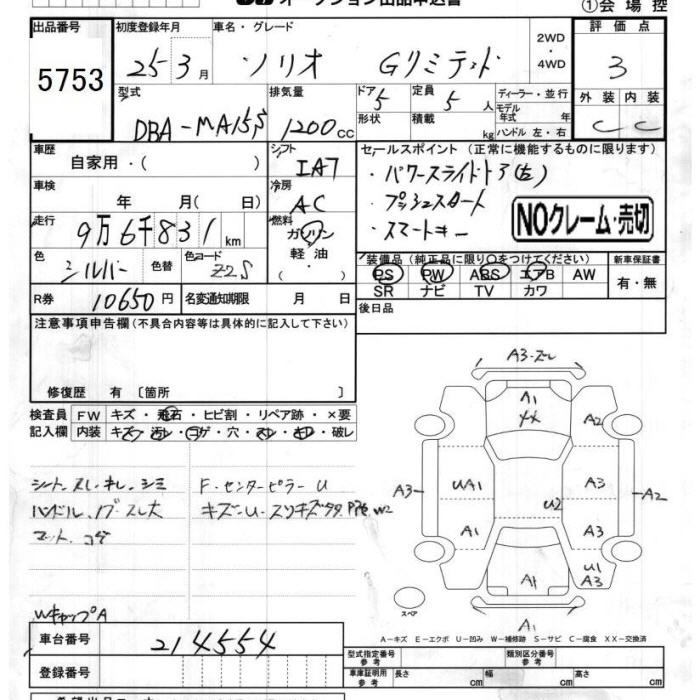 オークション出品申込書
①会場控
出品番号 初度登録年月 車名・グレード 2WD・4WD 評価点
5753 25-3月 ソリオ Gリミテッド 3
型式 排気量 ドア 5 定員 5人 ディーラー・並行 外装 内装
DBA-MA15S 1200cc 形状 積載 kg モデル年式 年 ハンドル 左・右 C C
車歴 シフト セールスポイント（正常に機能するものに限ります）
自家用・（ ） IA7 ・パワースライドドア(左)
車検 冷房 ・プッシュスタート
年 月（ 日） AC ・スマートキー
NOクレーム・売切
走行 燃料
9万6千831km ガソリン
軽油
装備品（純正品に限り○をつけてください） 新車保証書
色 シルバー 色替 色コード Z2S
PS PW ABS エアB AW 有・無
SR ナビ TV カワ
R券 10650円 名変通知期限 月 日
後日品
注意事項申告欄（不具合内容等は具体的に記入して下さい）
修復歴 有〔箇所 〕
検査員 FW キズ・飛石・ヒビ割・リペア跡・×要
記入欄 内装 キズ・汚レ・コゲ・穴・スレ・キレ・破レ
シート、スレ・キレ・シミ F・センターピラー U
ハンドル、ノブ・スレ大 キズ・U・スリキズタタ W2
マット、コゲ
WキャップA
A3・ズレ
A1
XX
A2
A3 UA1 A3 A2
U2
A1 A3
A1 U1
A3
スペア A1
A－キズ E－エクボ U－凹み W－補修跡 S－サビ C－腐食 XX－交換済
車台番号 214554
型式指定番号 参考 類別区分番号 参考
登録番号
車庫証明用 参考 長さ cm 幅 cm 高さ cm